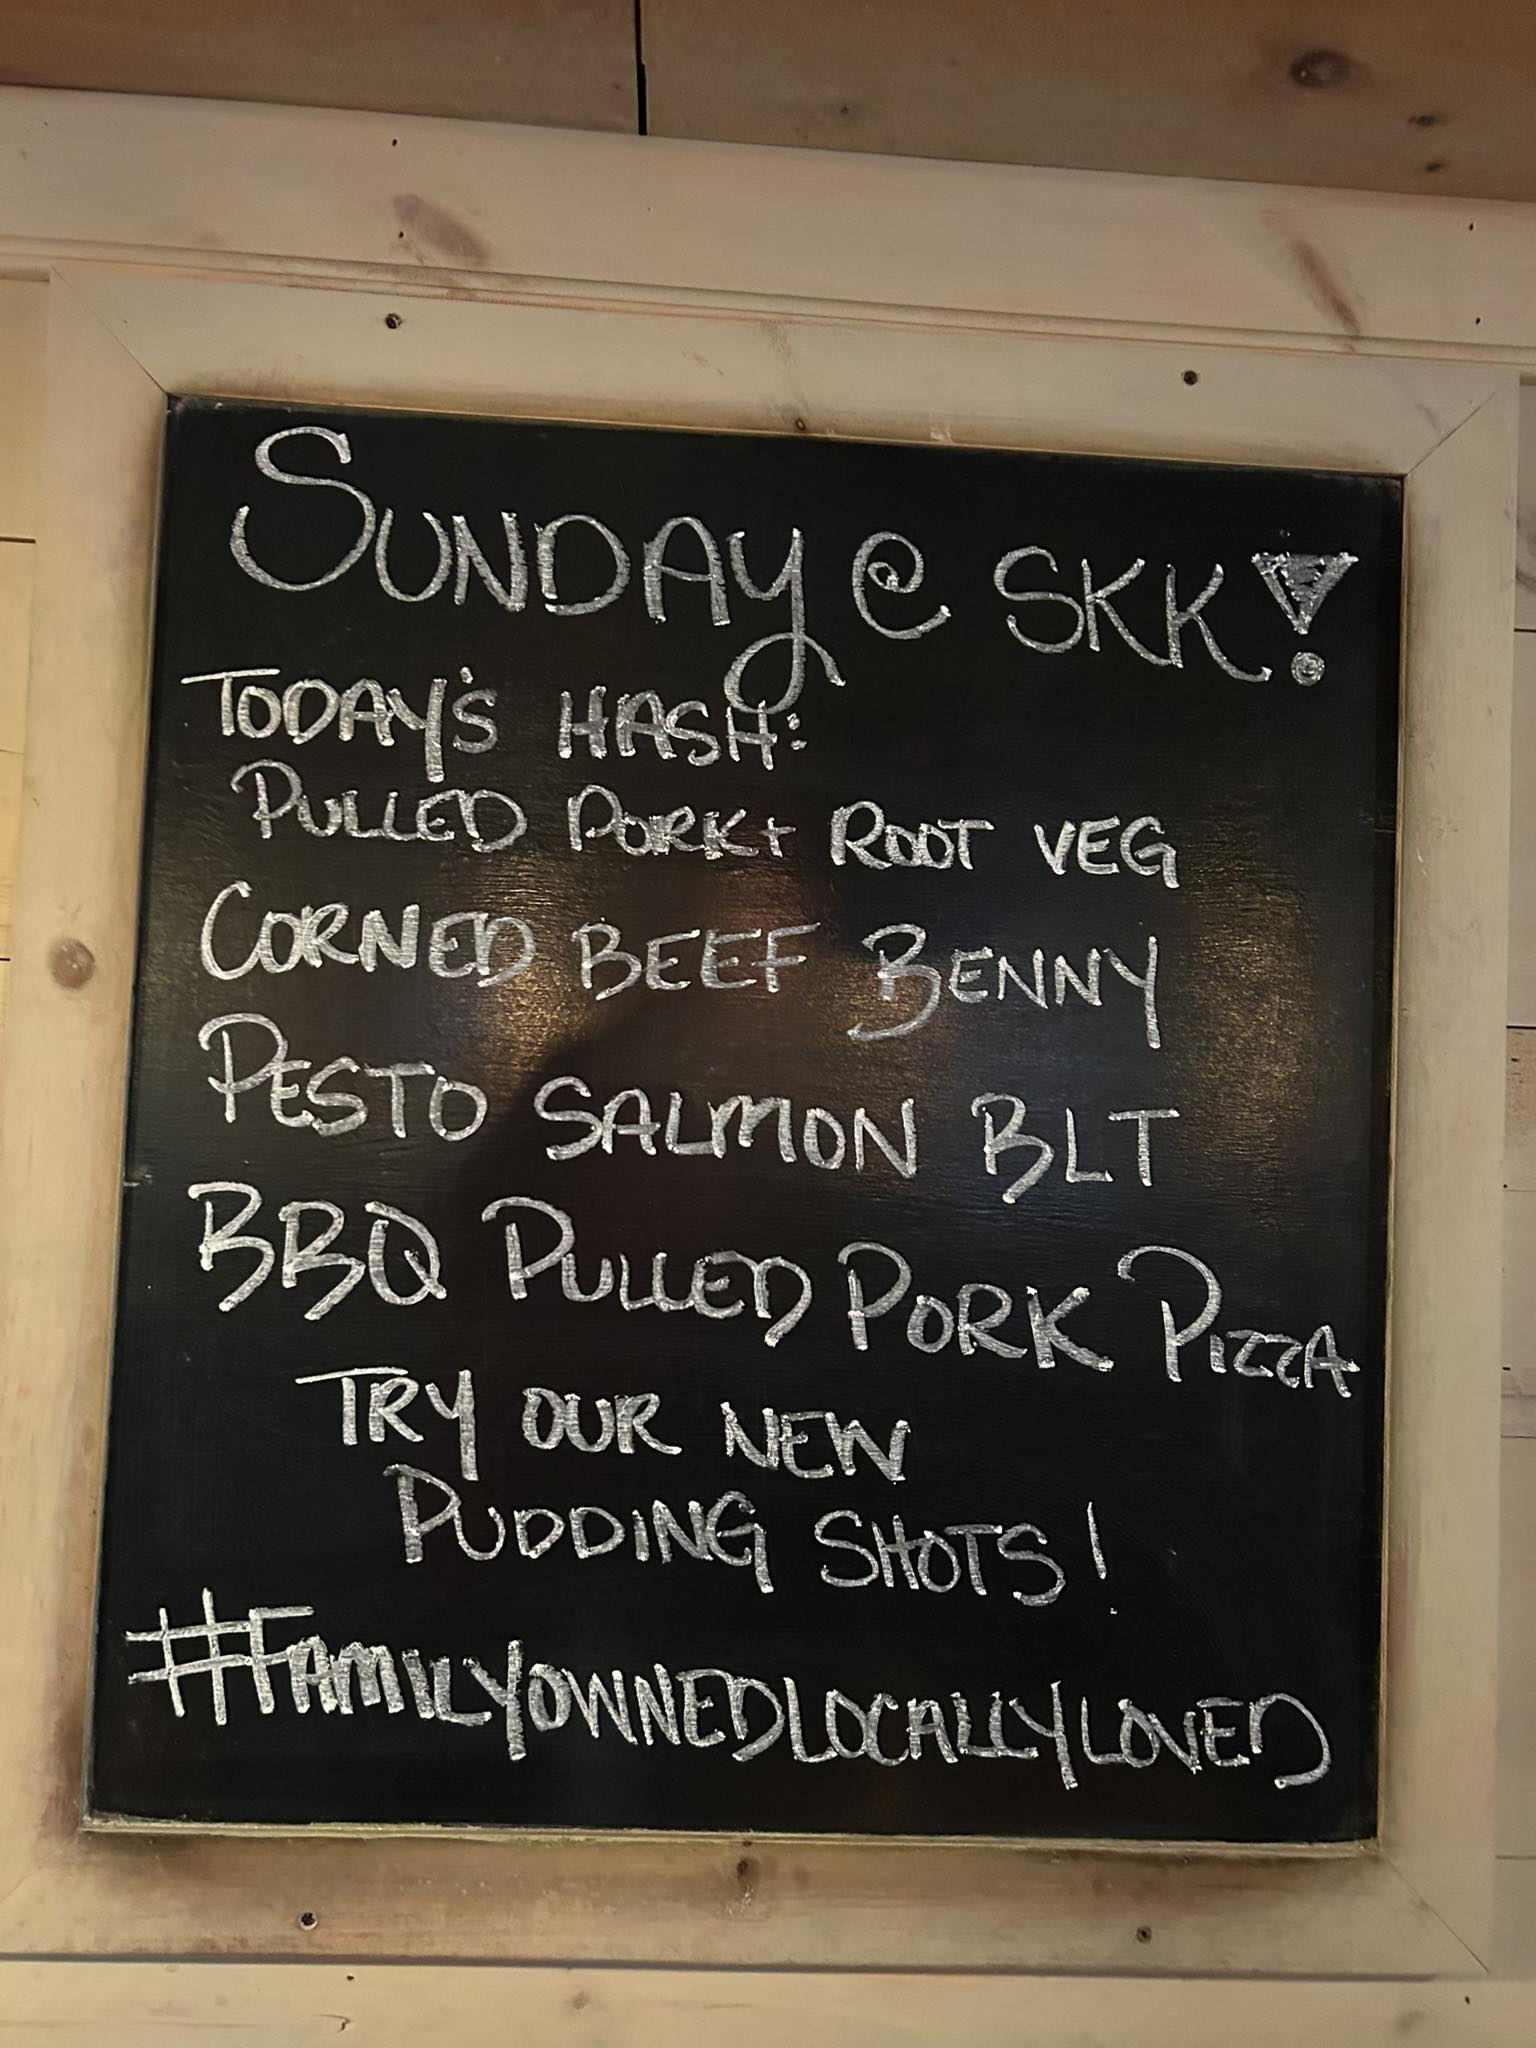 SUNDAY @ SKK!
TODAY'S HASH:
PULLED PORK + ROOT VEG
CORNED BEEF BENNY
PESTO SALMON BLT
BBQ PULLED PORK PIZZA
TRY OUR NEW
PUDDING SHOTS!
#FAMILYOWNEDLOCALLYLOVED